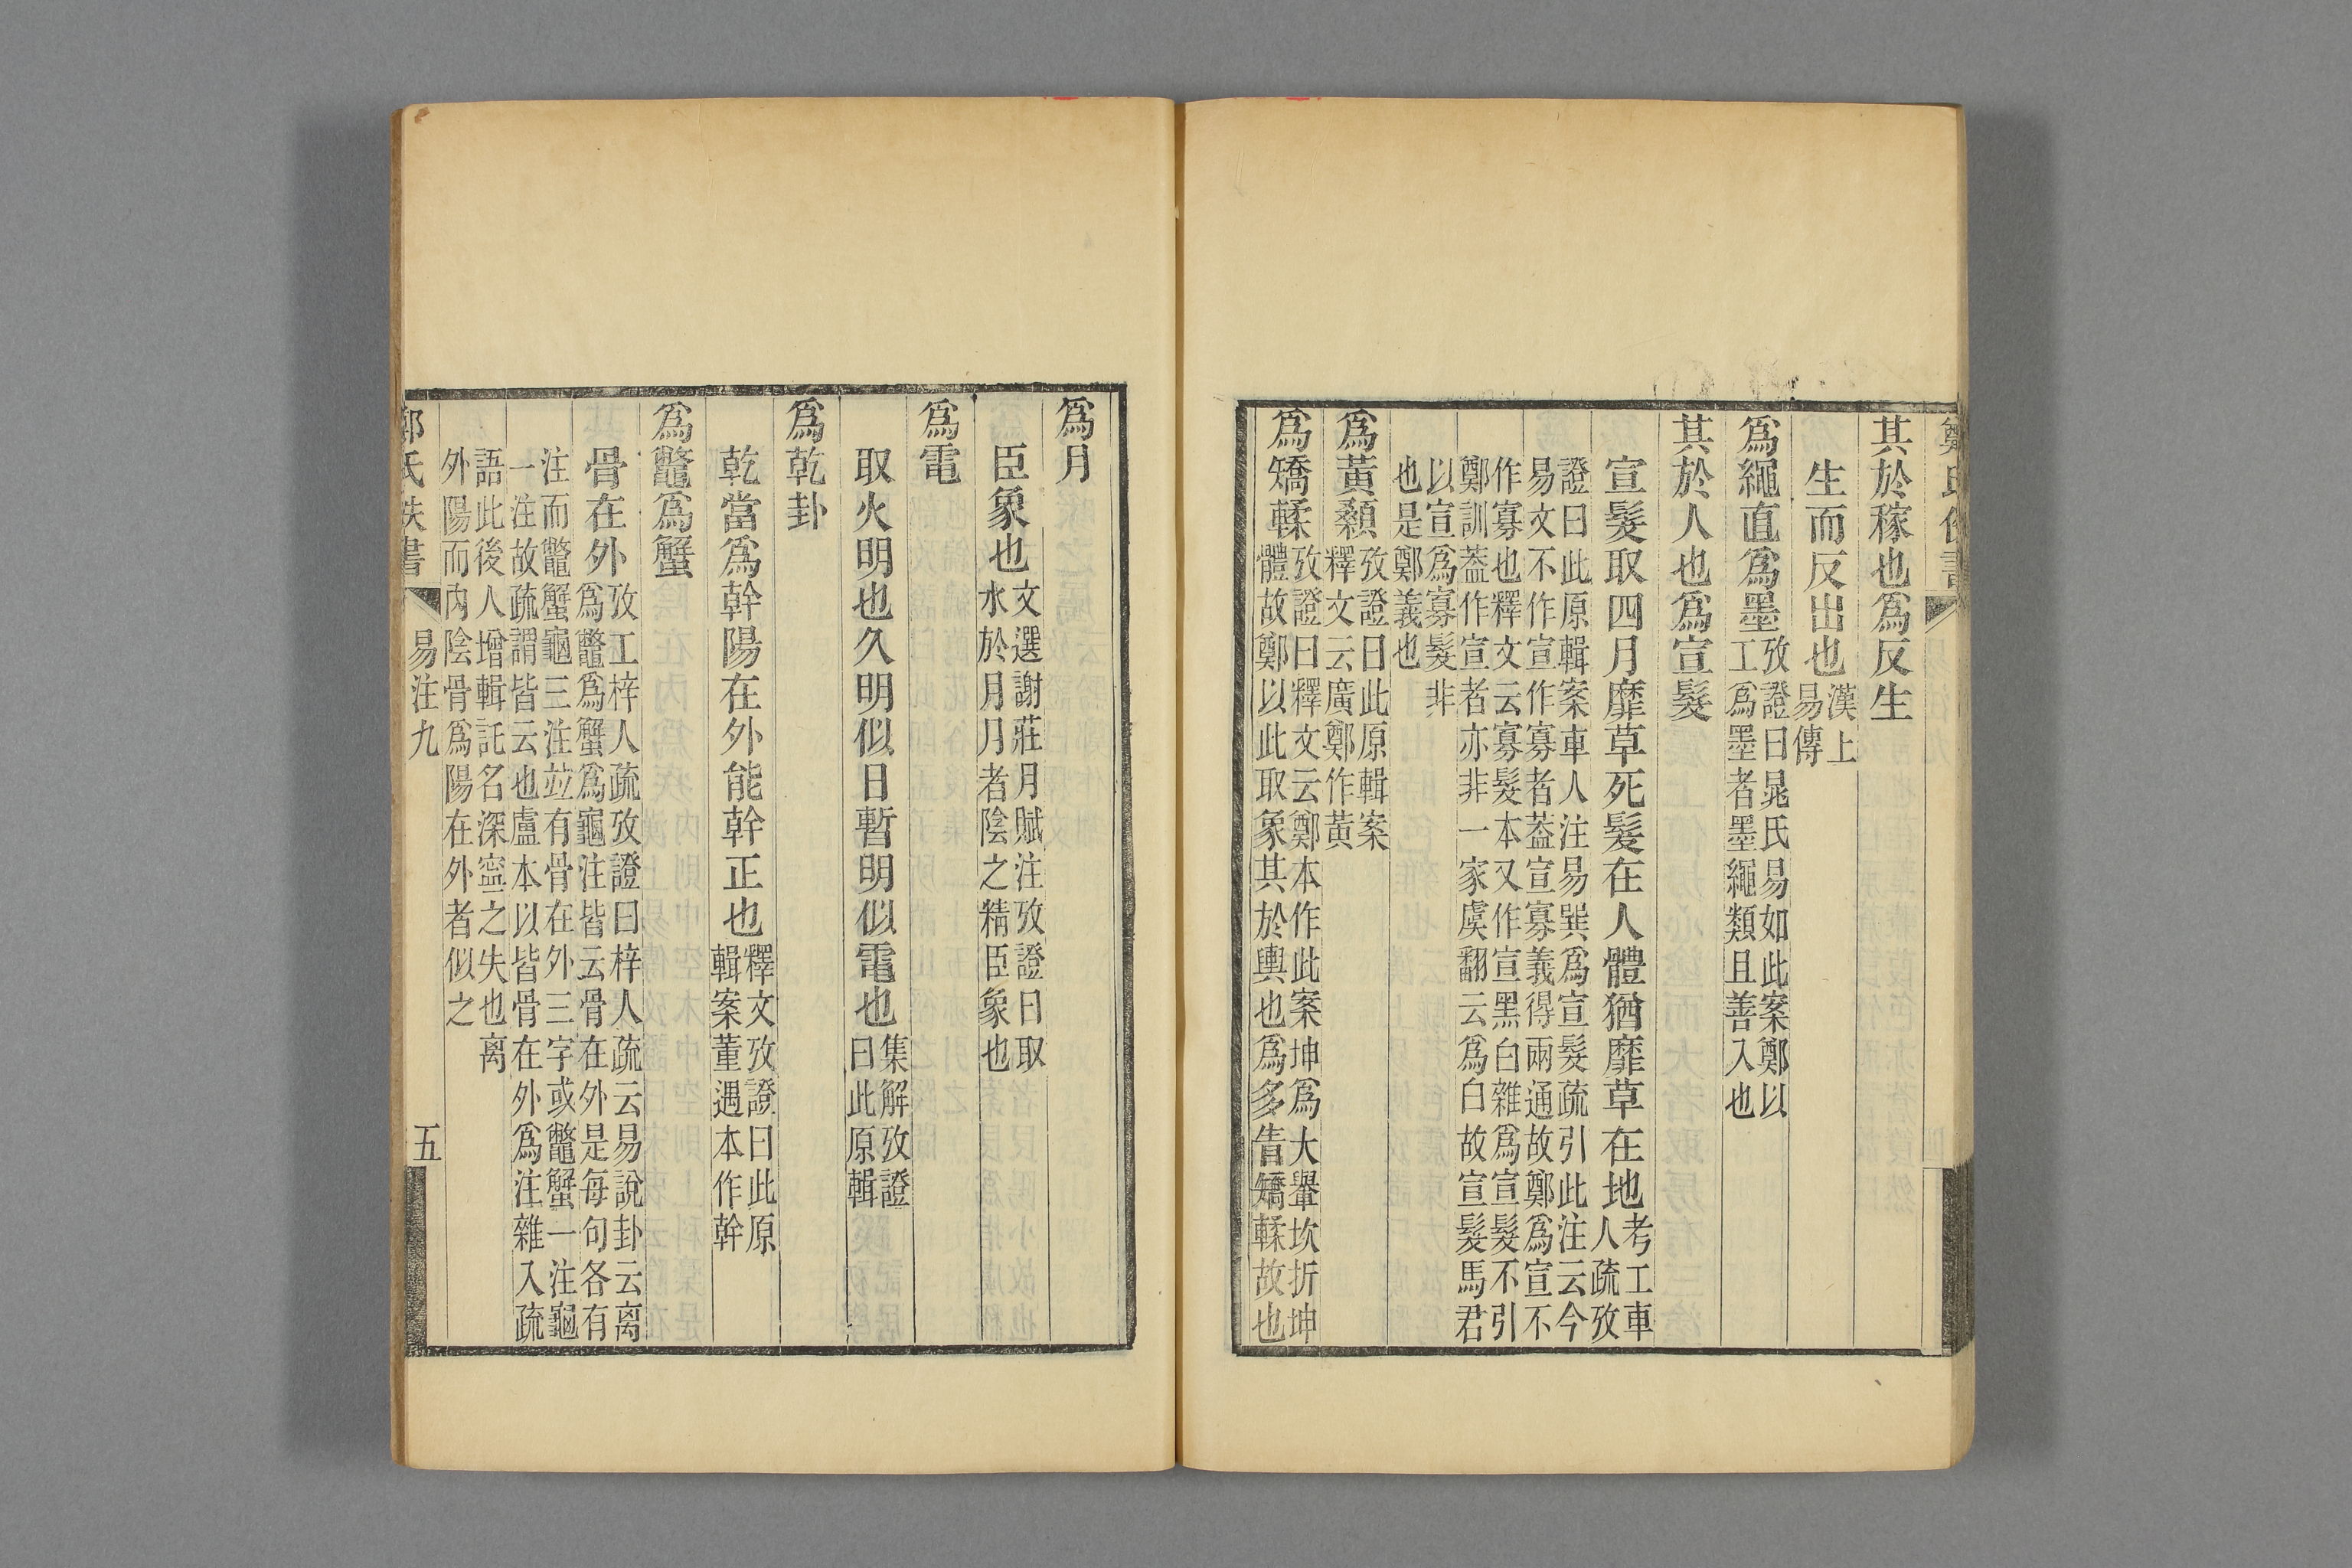 其於稼也爲反生
生而反出也漢上
易傳
爲繩直爲墨攷證曰晁氏易如此案鄭以
工爲墨者墨繩類且善入也
其於人也爲宣髮
宣髮取四月靡草死髮在人體猶靡草在地考工車
人疏攷
證曰此原輯案車人注易巽爲宣髮疏引此注云今
易文不作宣作寡者葢宣寡義得兩通故鄭爲宣不
作寡也釋文云寡髮本又作宣黑白雜爲宣髮不引
鄭訓葢作宣者亦非一家虞翻云爲白故宣髮馬君
以宣爲寡髮非
也是鄭義也
爲黃顙攷證曰此原輯案
釋文云廣鄭作黃
爲矯輮攷證曰釋文云鄭本作此案坤爲大轝坎折坤
體故鄭以此取象其於輿也爲多眚矯輮故也
爲月
臣象也文選謝莊月賦注攷證曰取
水於月月者陰之精臣象也
爲電
取火明也久明似日暫明似電也集解攷證
曰此原輯
爲乾卦
乾當爲幹陽在外能幹正也釋文攷證曰此原
輯案董遇本作幹
爲鼈爲蟹
骨在外攷工梓人疏攷證曰梓人疏云易說卦云离
爲鼈爲蟹爲龜注皆云骨在外是每句各有
注而鼈蟹龜三注竝有骨在外三字或鼈蟹一注龜
一注故疏謂皆云也盧本以皆骨在外爲注雜入疏
語此後人增輯託名深寍之失也离
外陽而內陰骨爲陽在外者似之
氏 書 易注九 五